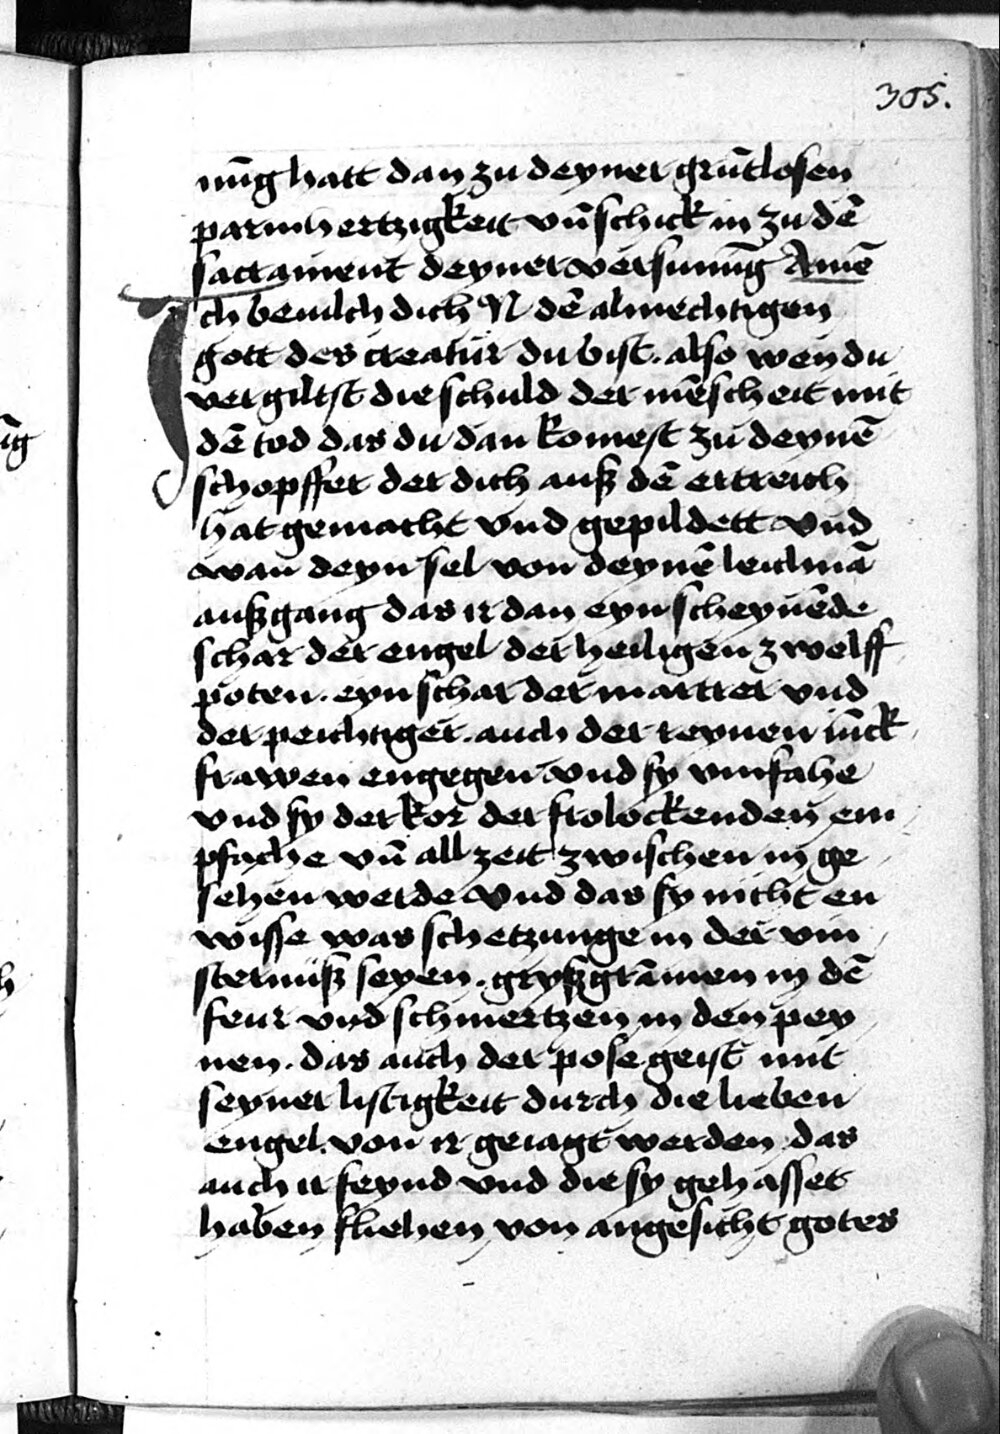 305.
nūg hatt dan zu deyner grūtlosen
parmhertzigkeit vn̄ schick in zu dē
sacrament deyner versunūg Amē
Ich beuilch dich N dē almechtigen
gott des creatur du bist. also wen du
vergiltst die schuld der mēscheit mit
dē tod das du dan komest zu deynē
schopffer der dich auß dē ertreich
hat gemacht vnd gepildett vnd
wan deyn sel von deynē leichnā
außgang das ir dan eyn scheynēde
schar der engel der heiligen zwelff
poten. eyn schar der martrer vnd
der peichtiger. auch der reynen iūck
frawen engegen vnd sy vmfahe
vnd sy der kor der frolockenden em
pfache vn̄ all zeit zwischen in ge
sehen werde vnd das sy nicht en
wisse was schetzunge in der vin
sternuß seyen. gryßgrāmen in dē
feur vnd schmertzen in den pey
nen. das auch der pose geist mit
seyner listigkeit durch die lieben
engel. von ir geiagt werden das
auch ir feynd vnd die sy gehasset
haben fliehen von angesicht gotes
ūg
h